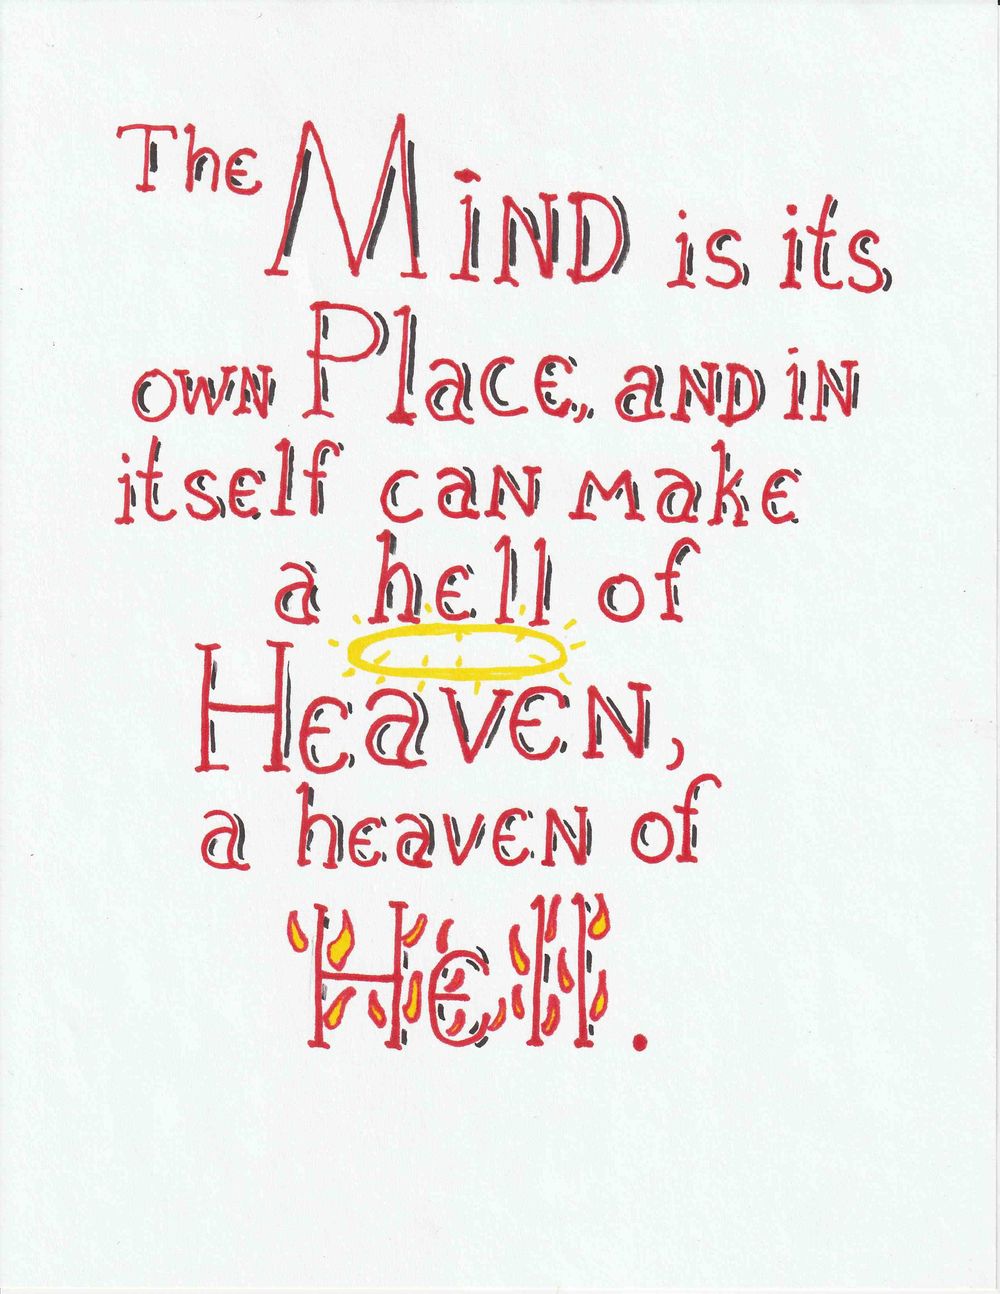 The MiND is its
OWN Place, aND iN
itself caN make
a hell of
HeaveN,
a heaveN of
Hell.